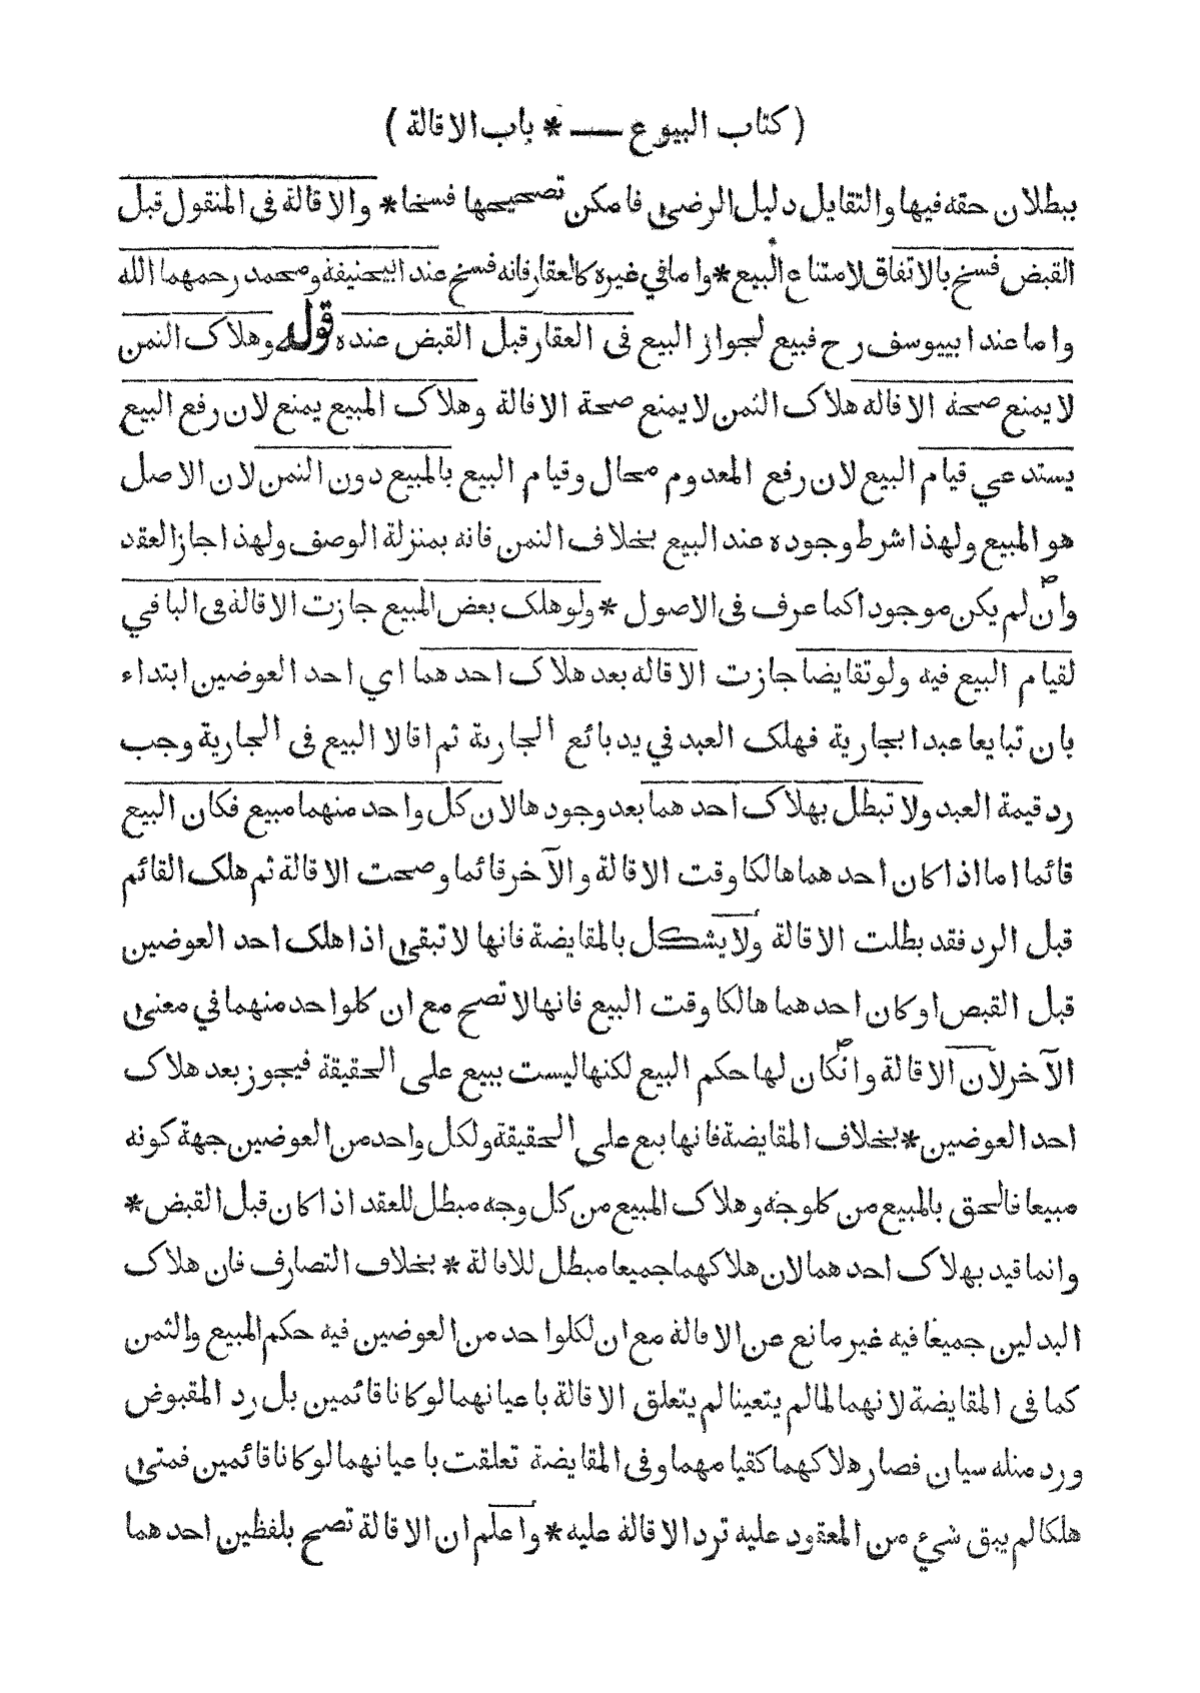 ( كتاب البيوع — * باب الاقالة )
ببطلان حقه فيها والتقايل دليل الرضى فامكن تصحيحها فسخا * والاقالة فى المنقول قبل
القبض فسخ بالاتفاق لامتناع البيع * واما في غيره كالعقار فانه فسخ عند ابيحنيفة ومحمد رحمهما الله
واما عند ابييوسف رح فبيع لجواز البيع فى العقار قبل القبض عنده قوله وهلاك الثمن
لا يمنع صحة الاقالة هلاك الثمن لا يمنع صحة الاقالة وهلاك المبيع يمنع لان رفع البيع
يستدعي قيام البيع لان رفع المعدوم محال وقيام البيع بالمبيع دون الثمن لان الاصل
هو المبيع ولهذا شرط وجوده عند البيع بخلاف الثمن فانه بمنزلة الوصف ولهذا جاز العقد
وان لم يكن موجودا كما عرف فى الاصول * ولو هلك بعض المبيع جازت الاقالة فى الباقي
لقيام البيع فيه ولو تقايضا جازت الاقالة بعد هلاك احدهما اي احد العوضين ابتداء
بان تبايعا عبدا بجارية فهلك العبد في يد بائع الجارية ثم اقالا البيع فى الجارية وجب
رد قيمة العبد ولا تبطل بهلاك احدهما بعد وجودها لان كل واحد منهما مبيع فكان البيع
قائما اما اذا كان احدهما هالكا وقت الاقالة والآخر قائما وصحت الاقالة ثم هلك القائم
قبل الرد فقد بطلت الاقالة ولا يشكل بالمقايضة فانها لا تبقى اذا هلك احد العوضين
قبل القبض او كان احدهما هالكا وقت البيع فانها لا تصح مع ان كلواحد منهما في معنى
الآخر لان الاقالة وان كان لها حكم البيع لكنها ليست ببيع على الحقيقة فيجوز بعد هلاك
احد العوضين * بخلاف المقايضة فانها بيع على الحقيقة ولكل واحد من العوضين جهة كونه
مبيعا فالحق بالمبيع من كلوجه وهلاك المبيع من كل وجه مبطل للعقد اذا كان قبل القبض *
وانما قيد بهلاك احدهما لان هلاكهما جميعا مبطل للاقالة * بخلاف التصارف فان هلاك
البدلين جميعا فيه غير مانع عن الاقالة مع ان لكلواحد من العوضين فيه حكم المبيع والثمن
كما فى المقايضة لانهما لما لم يتعينا لم يتعلق الاقالة باعيانهما لو كانا قائمين بل رد المقبوض
ورد مثله سيان فصار هلاكهما كقيامهما وفى المقايضة تعلقت باعيانهما لو كانا قائمين فمتى
هلكا لم يبق شيء من المعقود عليه ترد الاقالة عليه * واعلم ان الاقالة تصح بلفظين احدهما